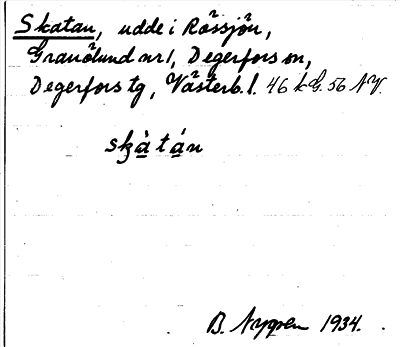 Skatan, udde i Rössjön,
Granölund nr 1, Degerfors sn,
Degerfors tg, Västerb. l. 46 k G. 56 NV.
skà̱tá̱n
B. Nygren 1934.